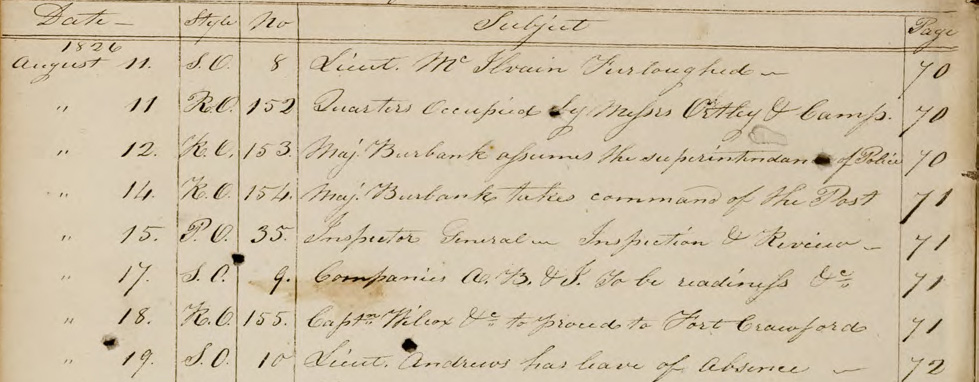 Date Style No Subject Page
1826
August 11. S.O. 8 Lieut. Mc Ilvain Furloughed 70
" 11 R.O. 152 Quarters Occupied by Messrs Ortley & Camp. 70
" 12. R.O. 153 Maj. Burbank assumes the superintendance of Police 70
" 14. R.O. 154. Maj. Burbank takes command of the Post 71
" 15. P.O. 35. Inspector General Inspection & Review 71
" 17. S.O. 9. Companies A. B. & I. To be readiness &c 71
" 18. R.O. 155. Captn Wilcox &c to proceed to Fort Crawford 71
" 19. S.O. 10 Lieut. Andrews has leave of Absence 72